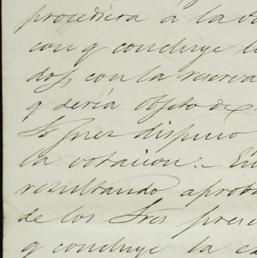 procediera á la vo
con q concluye la
dos, con la reserva
q sería objeto de
Sr Juez dispuso
la votacion.- En
resultando aproba
de los Sres prese
q concluye la ex